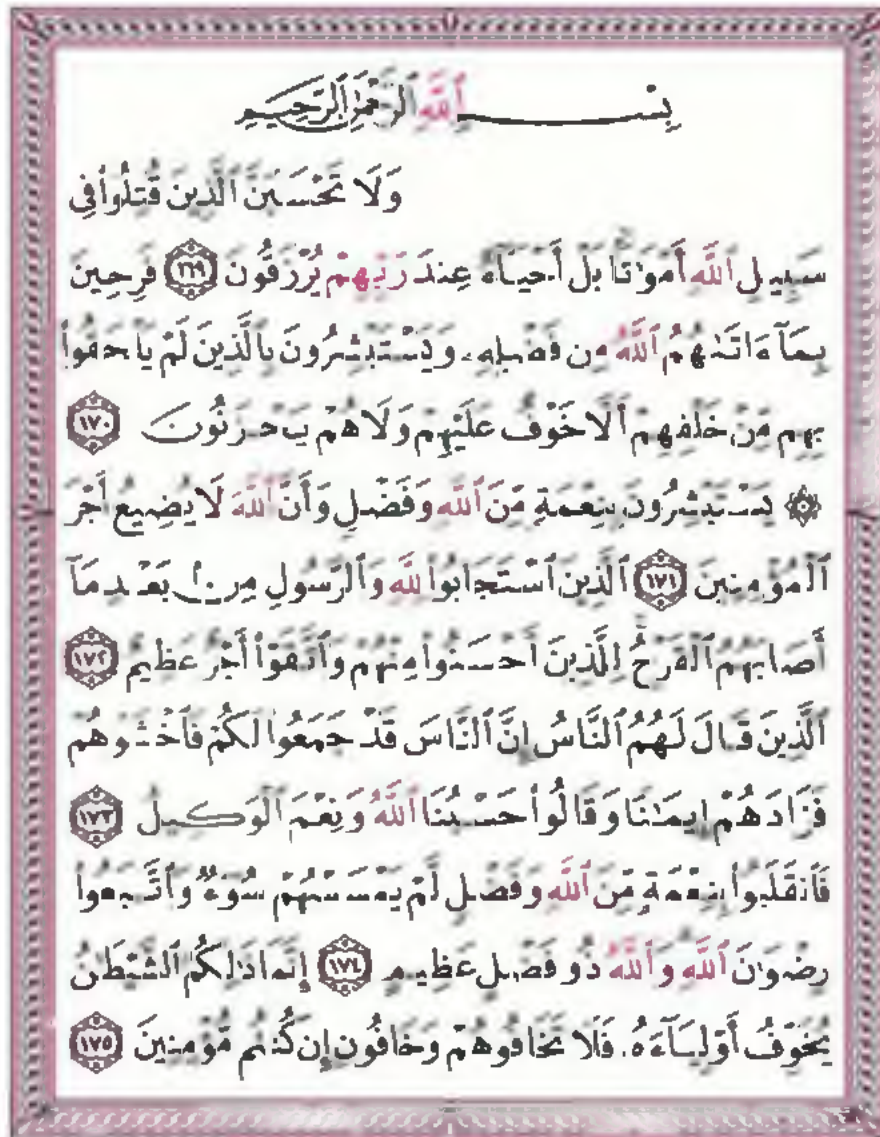 بِسْمِ ٱللَّهِ ٱلرَّحْمَٰنِ ٱلرَّحِيمِ
وَلَا تَحْسَبَنَّ ٱلَّذِينَ قُتِلُوا۟ فِى
سَبِيلِ ٱللَّهِ أَمْوَٰتًۢا بَلْ أَحْيَآءٌ عِندَ رَبِّهِمْ يُرْزَقُونَ ١٦٩ فَرِحِينَ
بِمَآ ءَاتَىٰهُمُ ٱللَّهُ مِن فَضْلِهِۦ وَيَسْتَبْشِرُونَ بِٱلَّذِينَ لَمْ يَلْحَقُوا۟
بِهِم مِّنْ خَلْفِهِمْ أَلَّا خَوْفٌ عَلَيْهِمْ وَلَا هُمْ يَحْزَنُونَ ١٧٠
۞ يَسْتَبْشِرُونَ بِنِعْمَةٍ مِّنَ ٱللَّهِ وَفَضْلٍ وَأَنَّ ٱللَّهَ لَا يُضِيعُ أَجْرَ
ٱلْمُؤْمِنِينَ ١٧١ ٱلَّذِينَ ٱسْتَجَابُوا۟ لِلَّهِ وَٱلرَّسُولِ مِنۢ بَعْدِ مَآ
أَصَابَهُمُ ٱلْقَرْحُ لِلَّذِينَ أَحْسَنُوا۟ مِنْهُمْ وَٱتَّقَوْا۟ أَجْرٌ عَظِيمٌ ١٧٢
ٱلَّذِينَ قَالَ لَهُمُ ٱلنَّاسُ إِنَّ ٱلنَّاسَ قَدْ جَمَعُوا۟ لَكُمْ فَٱخْشَوْهُمْ
فَزَادَهُمْ إِيمَٰنًا وَقَالُوا۟ حَسْبُنَا ٱللَّهُ وَنِعْمَ ٱلْوَكِيلُ ١٧٣
فَٱنقَلَبُوا۟ بِنِعْمَةٍ مِّنَ ٱللَّهِ وَفَضْلٍ لَّمْ يَمْسَسْهُمْ سُوٓءٌ وَٱتَّبَعُوا۟
رِضْوَٰنَ ٱللَّهِ وَٱللَّهُ ذُو فَضْلٍ عَظِيمٍ ١٧٤ إِنَّمَا ذَٰلِكُمُ ٱلشَّيْطَٰنُ
يُخَوِّفُ أَوْلِيَآءَهُۥ فَلَا تَخَافُوهُمْ وَخَافُونِ إِن كُنتُم مُّؤْمِنِينَ ١٧٥